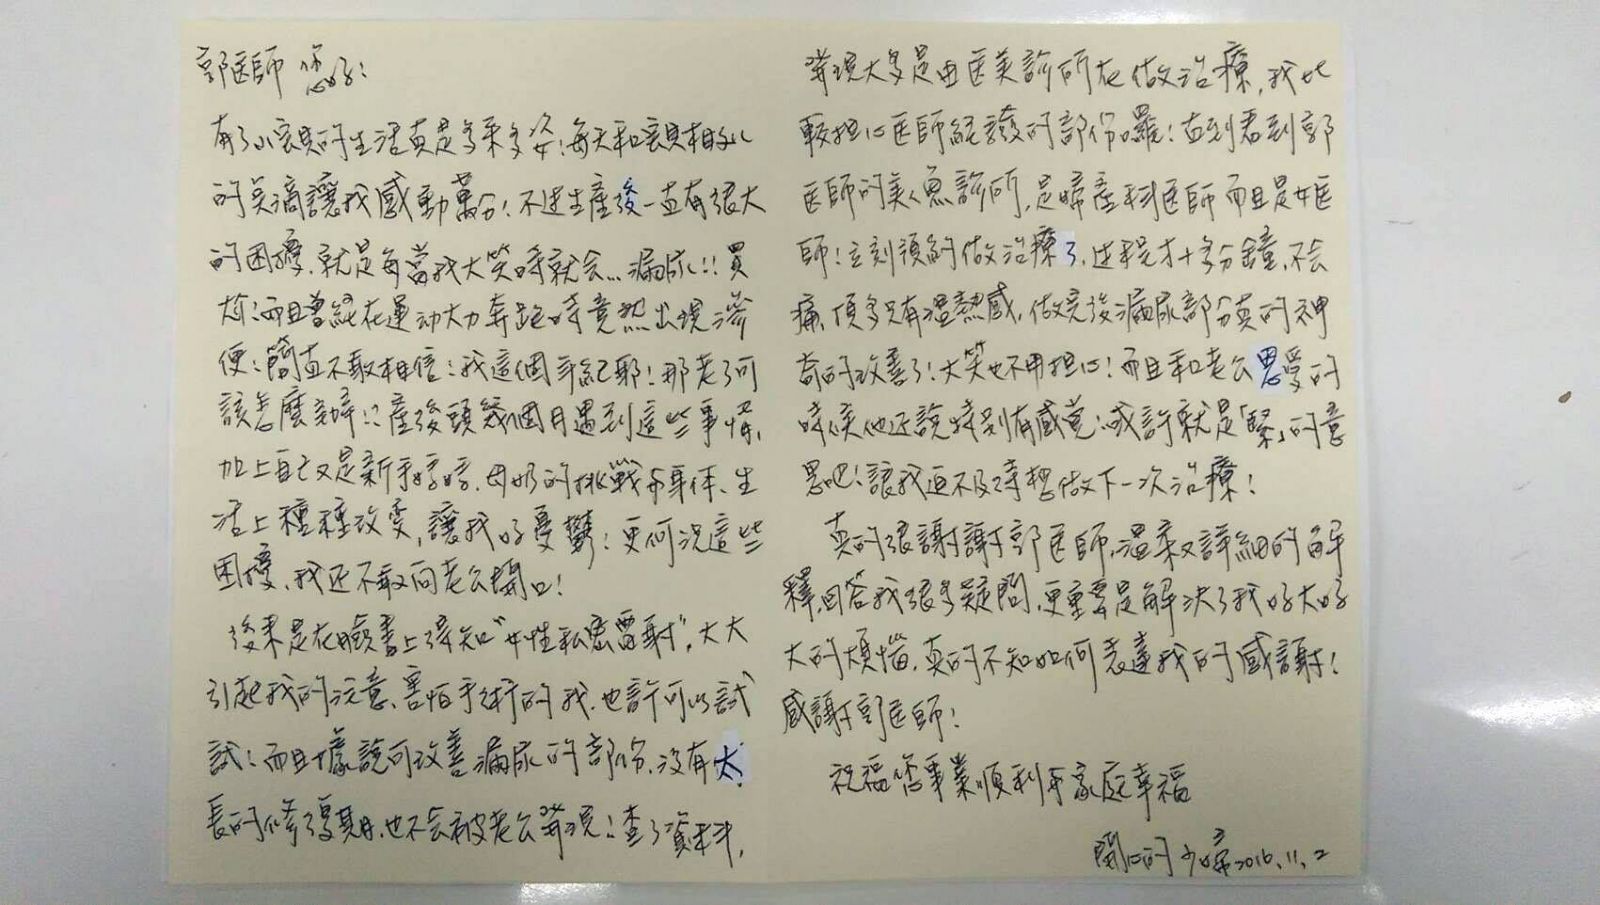 郭医師 您好:
有了小寶貝的生活真是多采多姿!每天和寶貝相處
的點滴讓我感動萬分!不過生產後一直有很大
的困擾.就是每當我大笑時就会...漏尿!!買
尬!而且曾經在運动大力奔跑時竟然出現滲
便!簡直不敢相信!我這個年紀耶!那老了可
該怎麼辦!!產後頭幾個月遇到這些事情,
加上自己又是新手媽媽.母奶的挑戰与身体、生
活上種種改变,讓我好憂鬱!更何況這些
困擾.我还不敢向老公開口!
後來是在臉書上得知"女性私密雷射",大大
引起我的注意.害怕手術的我.也許可以試
試!而且據說可改善漏尿的部份.沒有太
長的修復期.也不会被老公發現!查了資料,
發現大多是由医美診所在做治療,我比
較担心医師經驗的部份囉!直到看到郭
医師的美人魚診所,是婦產科医師而且是女医
師!立刻預約做治療了.过程才十多分鐘,不会
痛,頂多只有溫熱感.做完後漏尿部分真的神
奇的改善了!大笑也不用担心!而且和老公恩愛的
時候他还說特別有感觉!或許就是「緊」的意
思吧!讓我迫不及待想做下一次治療!
真的很謝謝郭医師,溫柔又詳細的解
釋,回答我很多疑問.更重要是解決了我好大好
大的煩惱.真的不知如何表達我的感謝!
感謝郭医師!
祝福您事業順利与家庭幸福
開心的少婦 2016.11.2